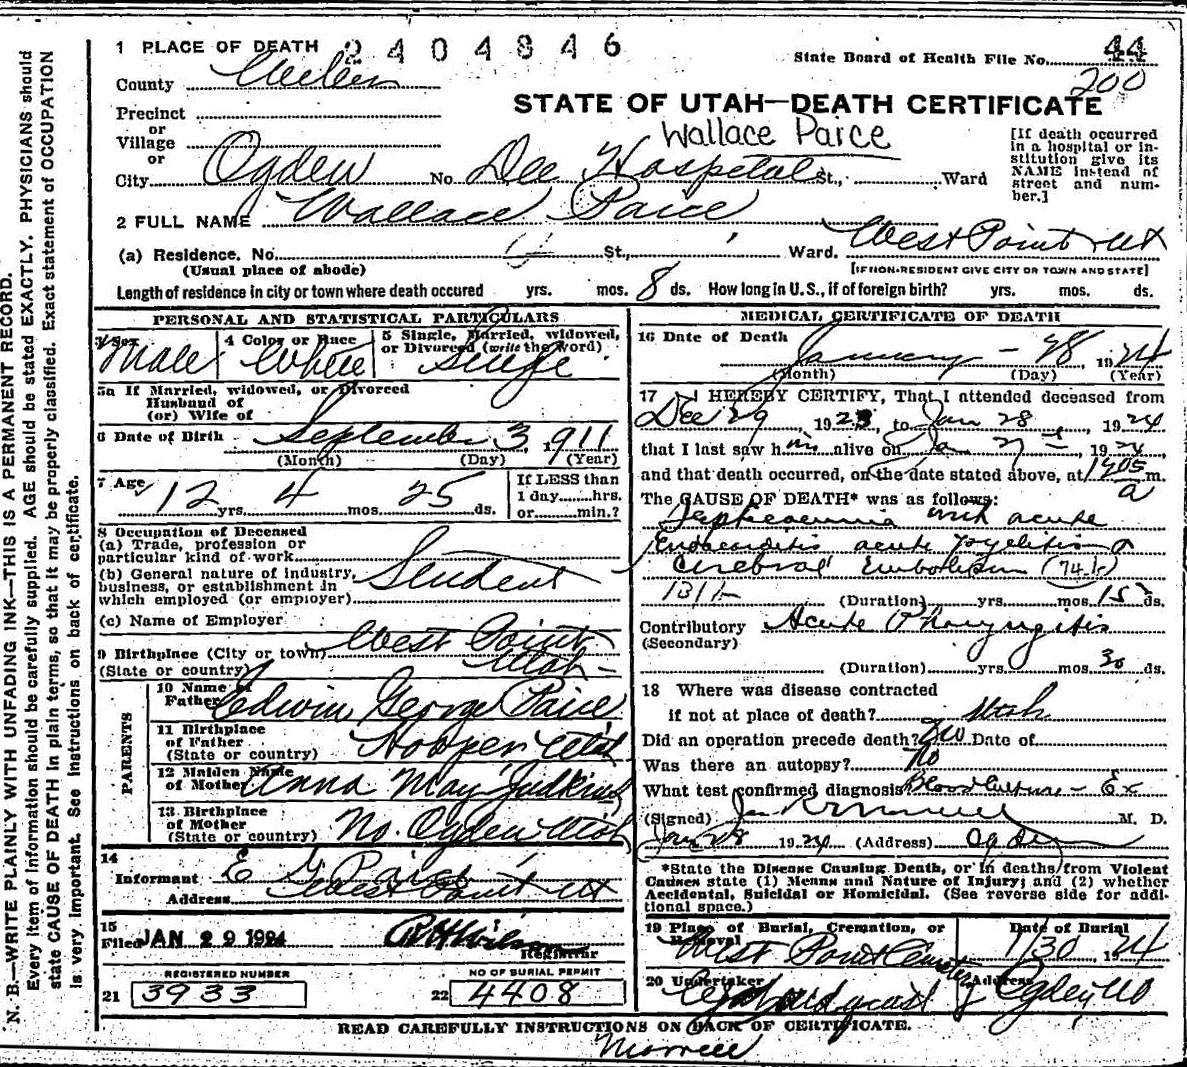 1 PLACE OF DEATH 2404846
State Board of Health File No. 44
200
County Weber
STATE OF UTAH—DEATH CERTIFICATE
Precinct
or
Village
or
Wallace Paice
City Ogden No. Dee Hospital St., Ward
[If death occurred in a hospital or in-
stitution give its
NAME instead of
street and num-
ber.]
2 FULL NAME Wallace Paice
(a) Residence. No. St., Ward. West Point Ut
(Usual place of abode)
[IF NON-RESIDENT GIVE CITY OR TOWN AND STATE]
Length of residence in city or town where death occured yrs. mos. 8 ds. How long in U.S., if of foreign birth? yrs. mos. ds.
PERSONAL AND STATISTICAL PARTICULARS
3 Sex Male
4 Color or Race White
5 Single, Married, widowed,
or Divorced (write the word) Single
5a If Married, widowed, or Divorced
Husband of
(or) Wife of
6 Date of Birth September 3, 1911
(Month) (Day) (Year)
7 Age 12 yrs. 4 mos. 25 ds.
If LESS than
1 day........hrs.
or..........min.?
8 Occupation of Deceased
(a) Trade, profession or
particular kind of work Student
(b) General nature of industry,
business, or establishment in
which employed (or employer)
(c) Name of Employer
9 Birthplace (City or town) West Point
(State or country) Utah
PARENTS
10 Name of
Father Edwin George Paice
11 Birthplace
of Father
(State or country) Hooper Utah
12 Maiden Name
of Mother Anna May Judkins
13 Birthplace
of Mother
(State or country) No. Ogden Utah
14
Informant E G Paice
Address West Point Ut
15
Filed JAN 29 1924
Registrar
REGISTERED NUMBER
21 3933
NO OF BURIAL PERMIT
22 4408
MEDICAL CERTIFICATE OF DEATH
16 Date of Death January - 28 1924
(Month) (Day) (Year)
17 I HEREBY CERTIFY, That I attended deceased from
Dec 29, 1923, to Jan 28, 1924
that I last saw him alive on Jan 27, 1924
and that death occurred, on the date stated above, at 1205 m.
a
The CAUSE OF DEATH* was as follows:
Septicaemia with acute
Endocarditis, acute pyelitis &
Cerebral Embolism (74.b)
(Duration) yrs. mos. 15 ds.
Contributory Acute Pharyngitis
(Secondary)
(Duration) yrs. mos. 30 ds.
18 Where was disease contracted
if not at place of death? Utah
Did an operation precede death? No Date of
Was there an autopsy? No
What test confirmed diagnosis Blood Culture - Ex
(Signed) M. D.
Jan 28 1924 (Address) Ogden
*State the Disease Causing Death, or in deaths from Violent
Causes state (1) Means and Nature of Injury; and (2) whether
Accidental, Suicidal or Homicidal. (See reverse side for addi-
tional space.)
19 Place of Burial, Cremation, or
Removal West Point Cemetery
Date of Burial
1/30, 1924
20 Undertaker
Address Ogden Ut
READ CAREFULLY INSTRUCTIONS ON BACK OF CERTIFICATE.
Morrell
N. B.—WRITE PLAINLY WITH UNFADING INK—THIS IS A PERMANENT RECORD.
Every item of information should be carefully supplied. AGE should be stated EXACTLY. PHYSICIANS should
state CAUSE OF DEATH in plain terms, so that it may be properly classified. Exact statement of OCCUPATION
is very important. See instructions on back of certificate.